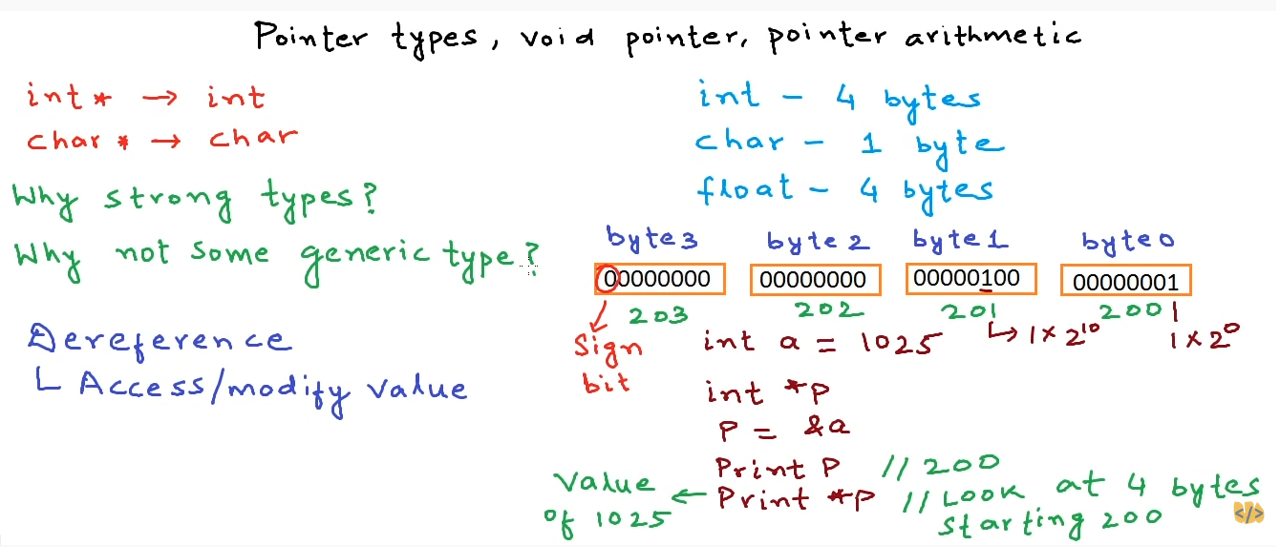 Pointer types, void pointer, pointer arithmetic
int* → int
char* → char
Why strong types?
Why not some generic type?
Dereference
↳ Access/modify value
int - 4 bytes
char - 1 byte
float - 4 bytes
byte3 byte2 byte1 byte0
00000000 00000000 00000100 00000001
203 202 201 200
Sign bit
↳ 1 x 2^10
1 x 2^0
int a = 1025
int *p
P = &a
Print P // 200
Print *p // Look at 4 bytes
starting 200
Value ←
of 1025
</>